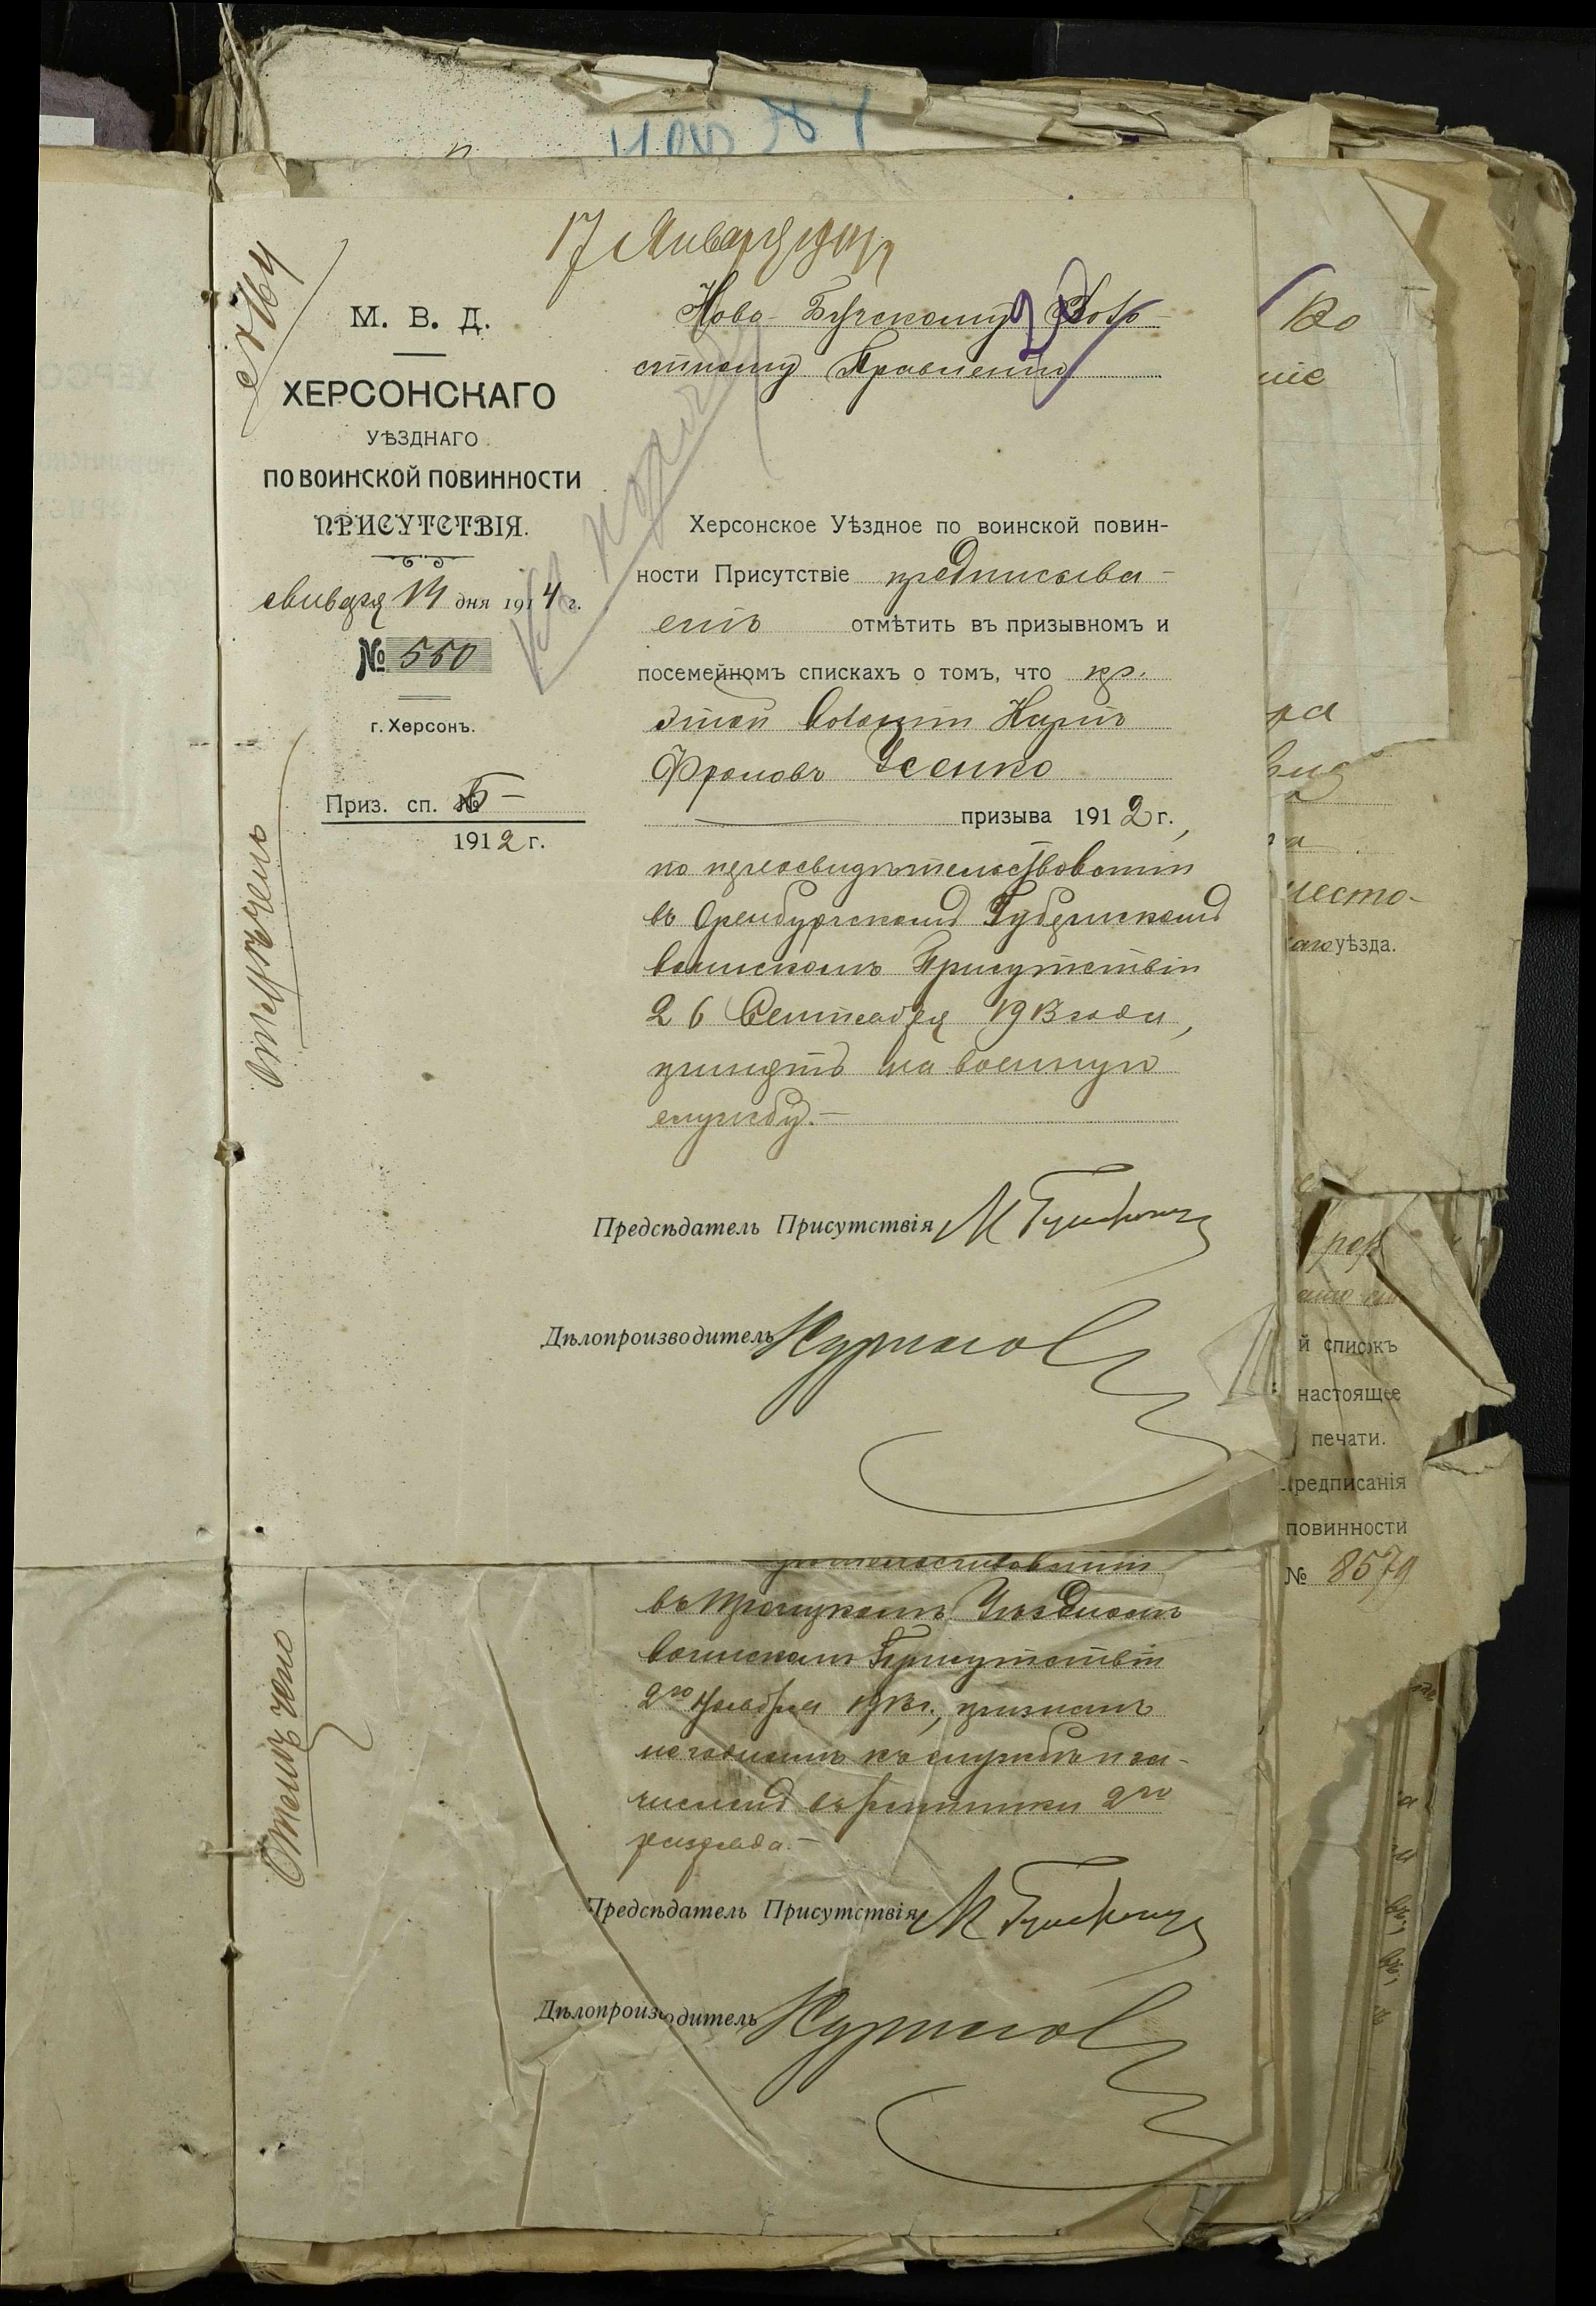 17 Января 1914 г
№ 164
М. В. Д.
ХЕРСОНСКАГО
УѢЗДНАГО
ПО ВОИНСКОЙ ПОВИННОСТИ
ПРИСУТСТВІЯ.
Января 14 дня 1914 г.
№ 550
г. Херсонъ.
Приз. сп. № Б —
1912 г.
Отмѣчено
Ново-Бугскому Воло-
стному Правленію
Херсонское Уѣздное по воинской повин-
ности Присутствіе предписыва-
етъ отмѣтить въ призывномъ и
посемейномъ спискахъ о томъ, что кр.
этой волости Карпъ
Фроловъ Усенко
призыва 1912 г.,
по переосвидѣтельствованіи
въ Оренбургскомъ Губернскомъ
воинскомъ Присутствіи
26 Сентября 1913 года,
принятъ на военную
службу.—
Предсѣдатель Присутствія
Дѣлопроизводитель
въ Троицкомъ Уѣздномъ
воинскомъ Присутствіи
2го Ноября 1913 г., признанъ
негоднымъ къ службѣ и за-
численъ въ ратники 2го
разряда.—
Отмѣчено
Предсѣдатель Присутствія
Дѣлопроизводитель
Во
ніе
ра
место-
аго уѣзда.
й списокъ
настоящее
печати.
редписанія
повинности
№ 8579